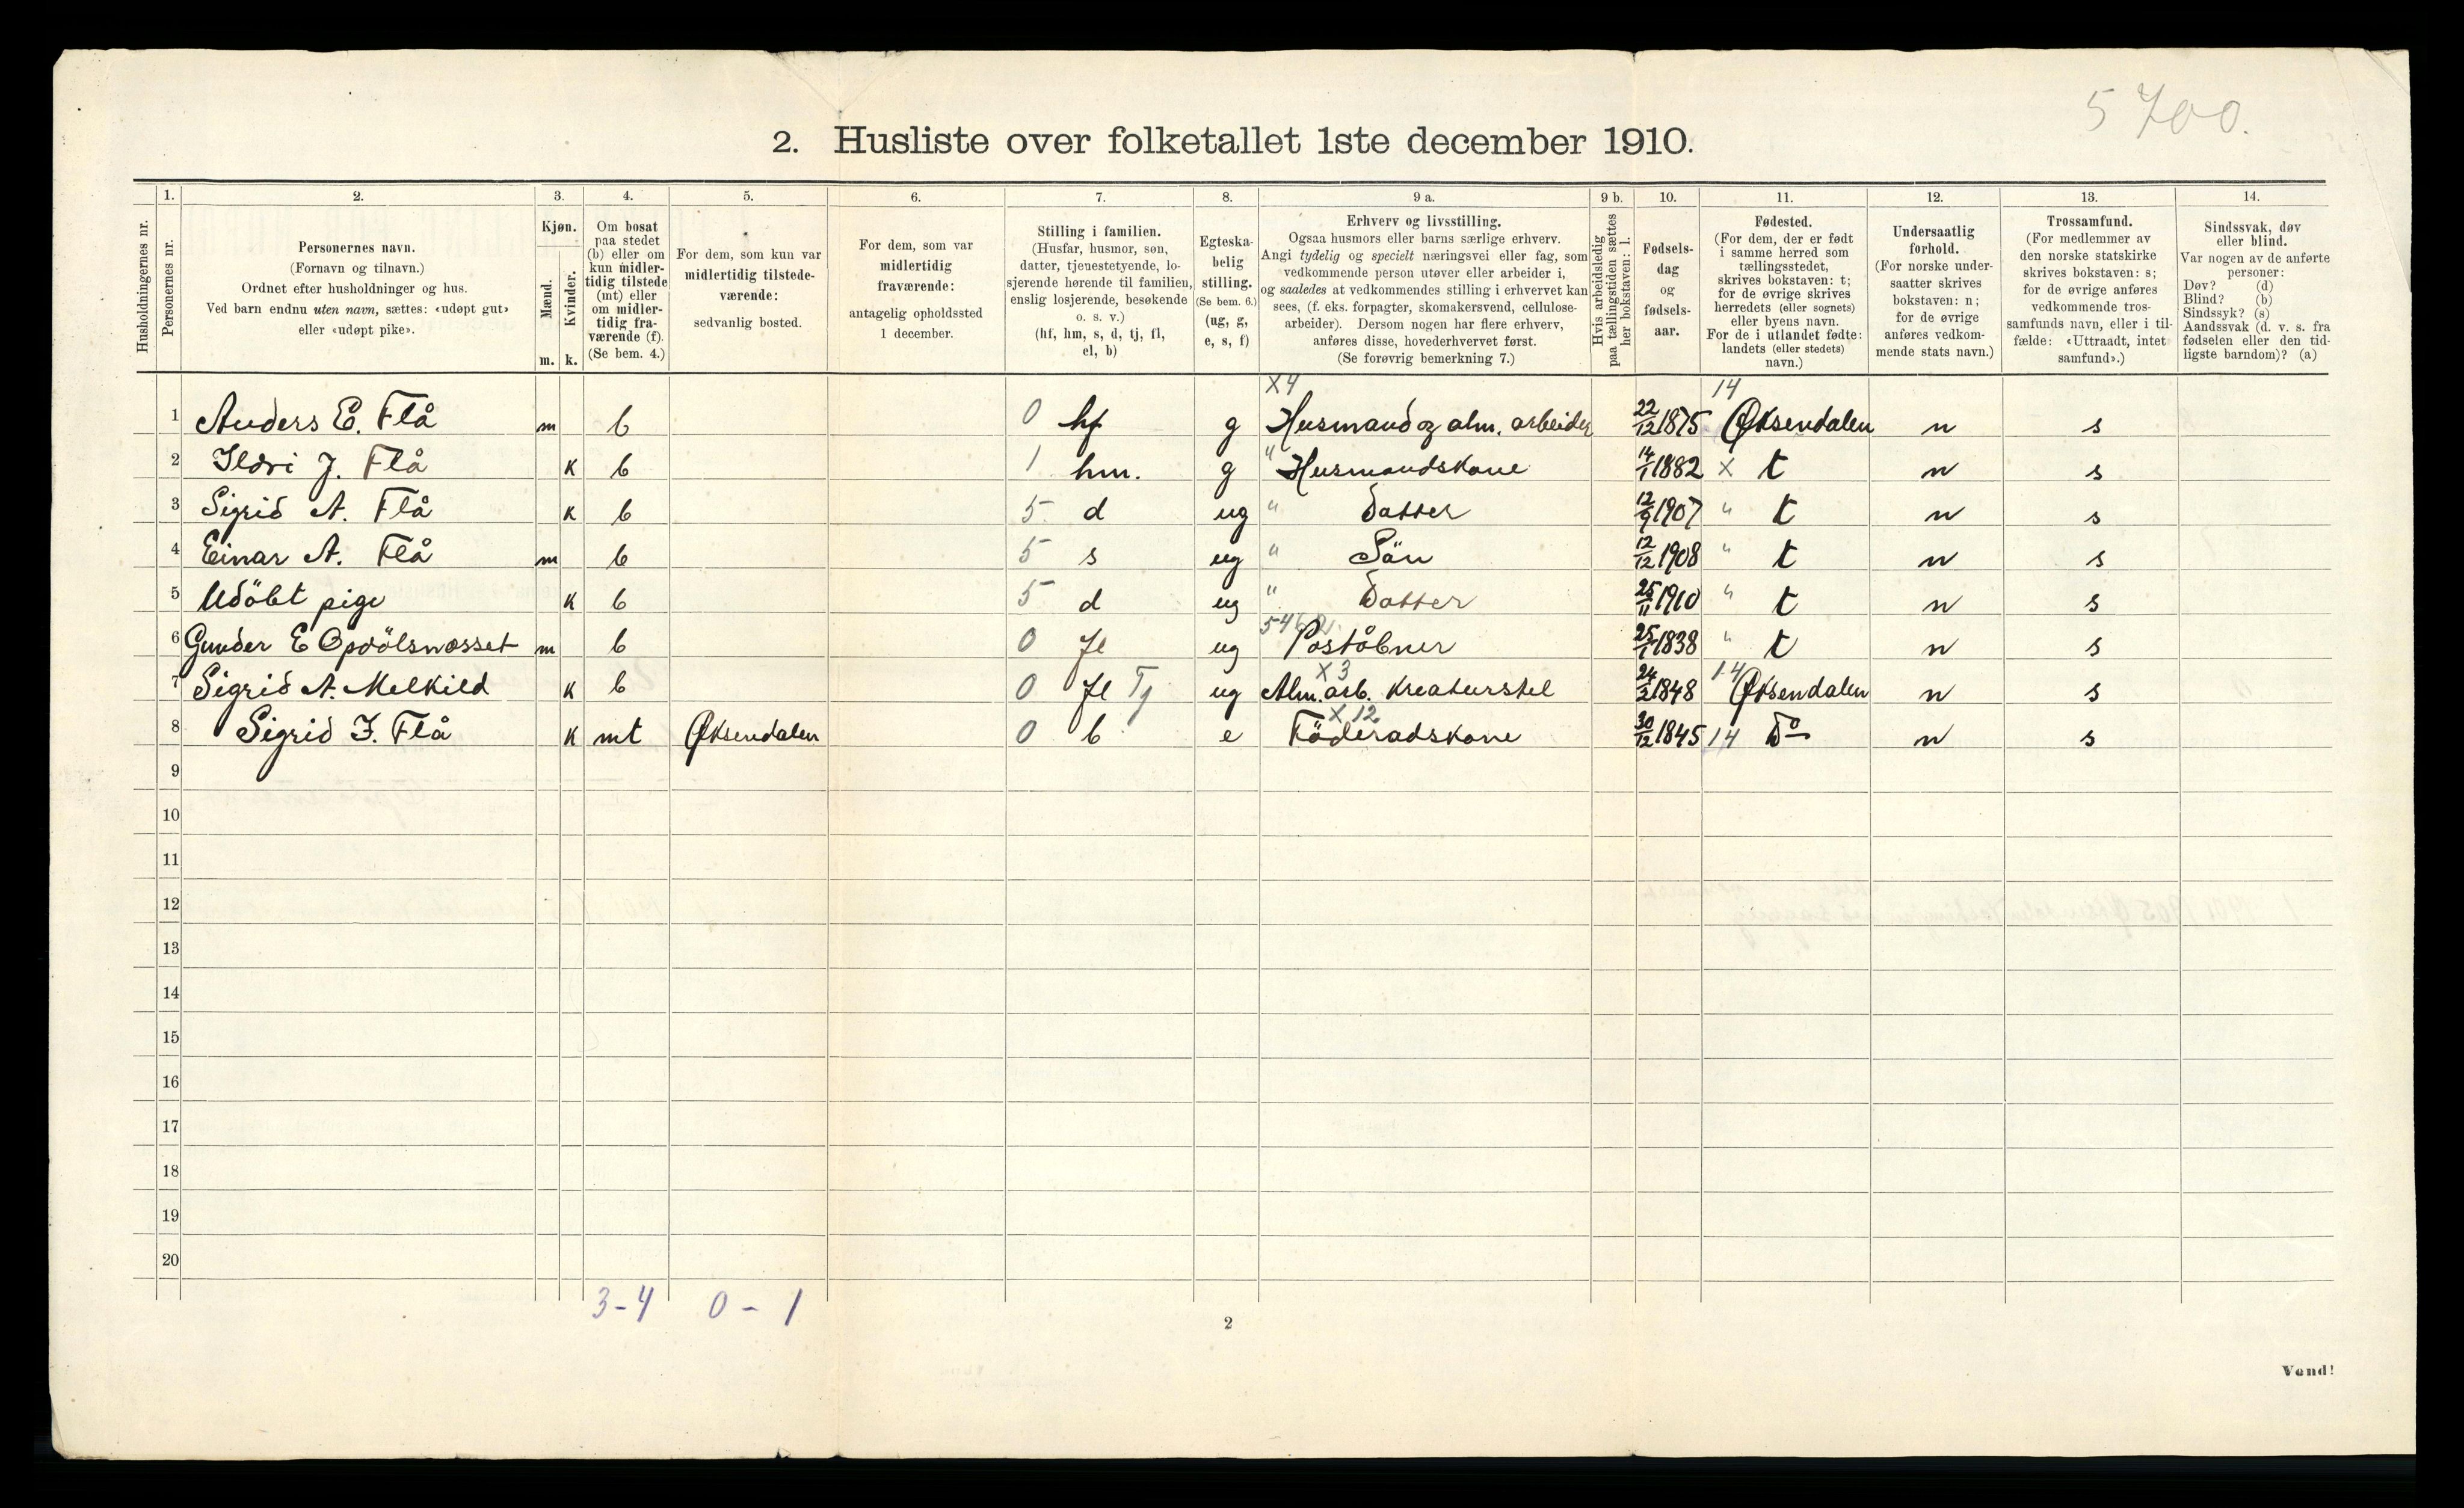 5700.
2. Husliste over folketallet 1ste december 1910.
Husholdningernes nr.
1. Personernes nr.
2. Personernes navn.
(Fornavn og tilnavn.)
Ordnet efter husholdninger og hus.
Ved barn endnu uten navn, sættes: «udøpt gut»
eller «udøpt pike».
3. Kjøn.
Mænd. m.
Kvinder. k.
4. Om bosat
paa stedet
(b) eller om
kun midler-
tidig tilstede
(mt) eller
om midler-
tidig fra-
værende (f).
(Se bem. 4.)
5. For dem, som kun var
midlertidig tilstede-
værende:
sedvanlig bosted.
6. For dem, som var
midlertidig
fraværende:
antagelig opholdssted
1 december.
7. Stilling i familien.
(Husfar, husmor, søn,
datter, tjenestetyende, lo-
sjerende hørende til familien,
enslig losjerende, besøkende
o. s. v.)
(hf, hm, s, d, tj, fl,
el, b)
8. Egteska-
belig
stilling.
(Se bem. 6.)
(ug, g,
e, s, f)
9 a. Erhverv og livsstilling.
Ogsaa husmors eller barns særlige erhverv.
Angi tydelig og specielt næringsvei eller fag, som
vedkommende person utøver eller arbeider i,
og saaledes at vedkommendes stilling i erhvervet kan
sees, (f. eks. forpagter, skomakersvend, cellulose-
arbeider). Dersom nogen har flere erhverv,
anføres disse, hovederhvervet først.
(Se forøvrig bemerkning 7.)
9 b. Hvis arbeidsledig
paa tællingstiden sættes
her bokstaven: l.
10. Fødsels-
dag
og
fødsels-
aar.
11. Fødested.
(For dem, der er født
i samme herred som
tællingsstedet,
skrives bokstaven: t;
for de øvrige skrives
herredets (eller sognets)
eller byens navn.
For de i utlandet fødte:
landets (eller stedets)
navn.)
12. Undersaatlig
forhold.
(For norske under-
saatter skrives
bokstaven: n;
for de øvrige
anføres vedkom-
mende stats navn.)
13. Trossamfund.
(For medlemmer av
den norske statskirke
skrives bokstaven: s;
for de øvrige anføres
vedkommende tros-
samfunds navn, eller i til-
fælde: «Uttraadt, intet
samfund».)
14. Sindssvak, døv
eller blind.
Var nogen av de anførte
personer:
Døv? (d)
Blind? (b)
Sindssyk? (s)
Aandssvak (d. v. s. fra
fødselen eller den tid-
ligste barndom)? (a)
X4 14
1 Anders E. Flå m b 0 hf g Husmand og alm. arbeider 22/12 1875 Øksendalen n s
2 Ildri J. Flå k b 1 hm. g " Husmandskone 14/1 1882 X t n s
3 Sigrid A. Flå k b 5 d ug " Datter 12/9 1907 " t n s
4 Einar A. Flå m b 5 s ug " Sön 12/12 1908 " t n s
5 Udöbt pige k b 5 d ug " Datter 25/11 1910 " t n s
5462.
6 Gunder E Opdölsnæsset m b 0 fl ug Poståbner 25/1 1838 " t n s
X3 14
7 Sigrid A. Melkild k b 0 fl Tj ug Alm. arb. Kreaturstel 24/2 1848 Øksendalen n s
X 12
8 Sigrid I. Flå k mt Øksendalen 0 b e Föderadskone 30/12 1845 14 Do n s
9
10
11
12
13
14
15
16
17
18
19
20
3-4 0-1
2
Vend!